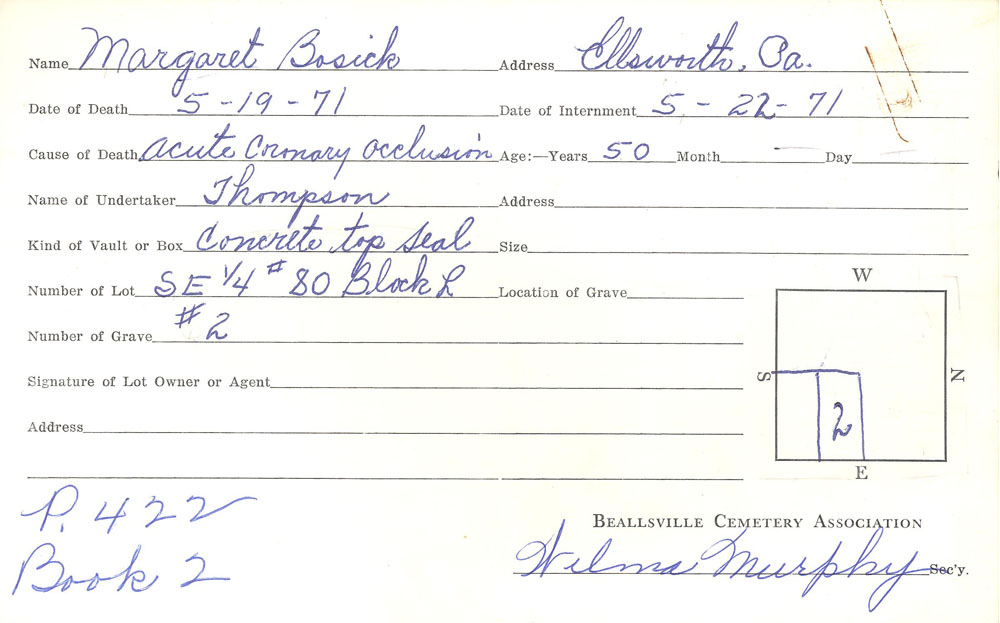 Name Margaret Bosick Address Ellsworth, Pa.
Date of Death 5-19-71 Date of Internment 5-22-71
Cause of Death Acute Coronary Occlusion Age:—Years 50 Month — Day
Name of Undertaker Thompson Address
Kind of Vault or Box Concrete top seal Size
Number of Lot SE 1/4 # 80 Block L Location of Grave
Number of Grave # 2
Signature of Lot Owner or Agent
Address
W
S
N
2
E
P. 422
Book 2
BEALLSVILLE CEMETERY ASSOCIATION
Wilma Murphy Sec'y.